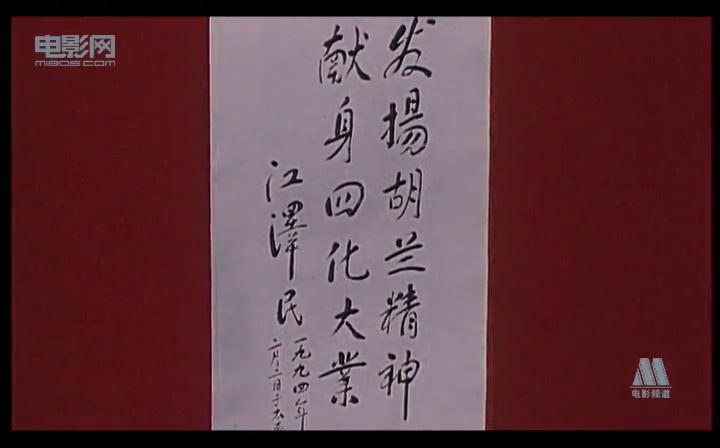 电影网
m1905.com
发揚胡兰精神
献身四化大業
江澤民
一九九四年
二月二日于太原
电影频道